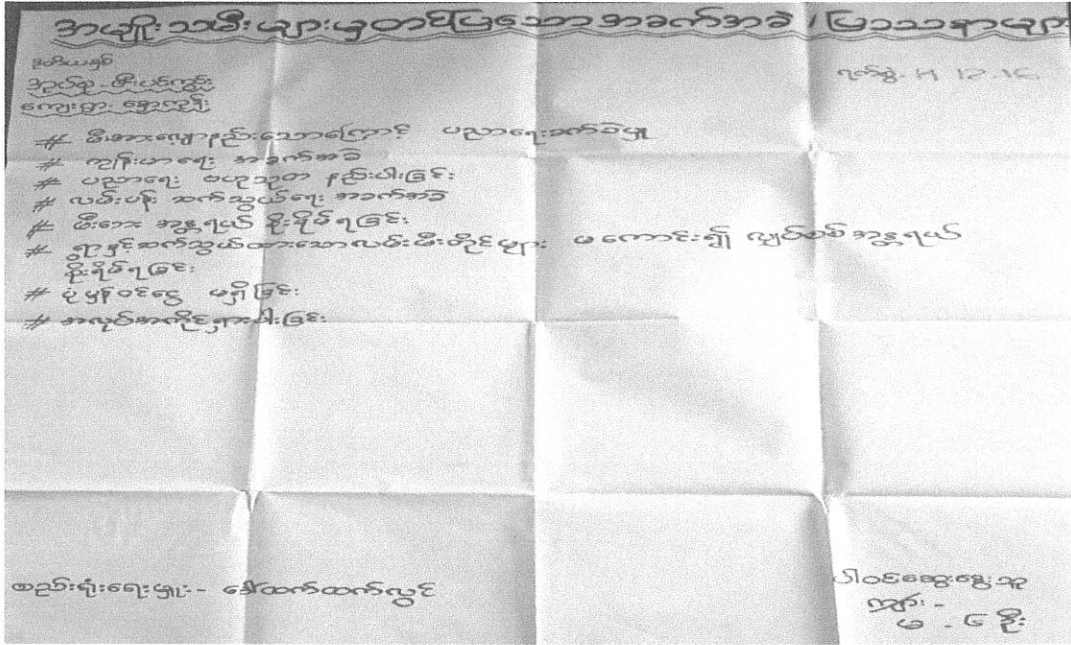 အမျိုးသမီးများမှတင်ပြသောအခက်အခဲ / ပြဿနာများ
ရက်စွဲ. 4 12 16
# မီးအားလျော့နည်းသောကြောင့် ပညာရေးခက်ခဲမှု
# ကျန်းမာရေး အခက်အခဲ
# ပညာရေး ဗဟုသုတ နည်းပါးခြင်း
# လမ်းပန်း ဆက်သွယ်ရေး အခက်အခဲ
# မီးဘေး အန္တရာယ် စိုးရိမ်ရခြင်း
# ရွာနှင့်ဆက်သွယ်ထားသောလမ်းမီးတိုင်များ မကောင်း၍ လျှပ်စစ်အန္တရာယ်
စိုးရိမ်ရခြင်း
# ပုံမှန်ဝင်ငွေ မရှိခြင်း
# အလုပ်အကိုင်ရှားပါးခြင်း
စည်းရုံးရေးမှူး - ဒေါ်ထက်ထက်လွင်
ပါဝင်ဆွေးနွေးသူ
ကျား -
မ - ၆ ဦး